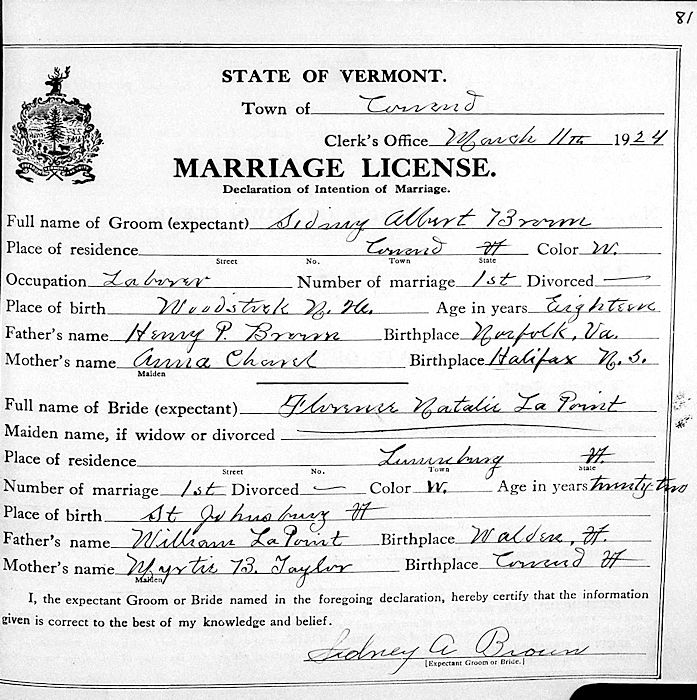 81
STATE OF VERMONT.
Town of Concord
Clerk's Office March 11th 1924
MARRIAGE LICENSE.
Declaration of Intention of Marriage.
Full name of Groom (expectant) Sidney Albert Brown
Place of residence Concord Vt Color W.
Street No. Town State
Occupation Laborer Number of marriage 1st Divorced —
Place of birth Woodstock N. H. Age in years Eighteen
Father's name Henry P. Brown Birthplace Norfolk, Va.
Mother's name Anna Birthplace Halifax N. S.
Maiden
Full name of Bride (expectant) Florence Natalie La Point
Maiden name, if widow or divorced
Place of residence Lunenburg Vt.
Street No. Town State
Number of marriage 1st Divorced — Color W. Age in years twenty-two
Place of birth St Johnsbury Vt
Father's name William La Point Birthplace Walden, Vt.
Mother's name Myrtie B. Taylor Birthplace Concord Vt
Maiden
I, the expectant Groom or Bride named in the foregoing declaration, hereby certify that the information
given is correct to the best of my knowledge and belief.
Sidney A Brown
[Expectant Groom or Bride.]